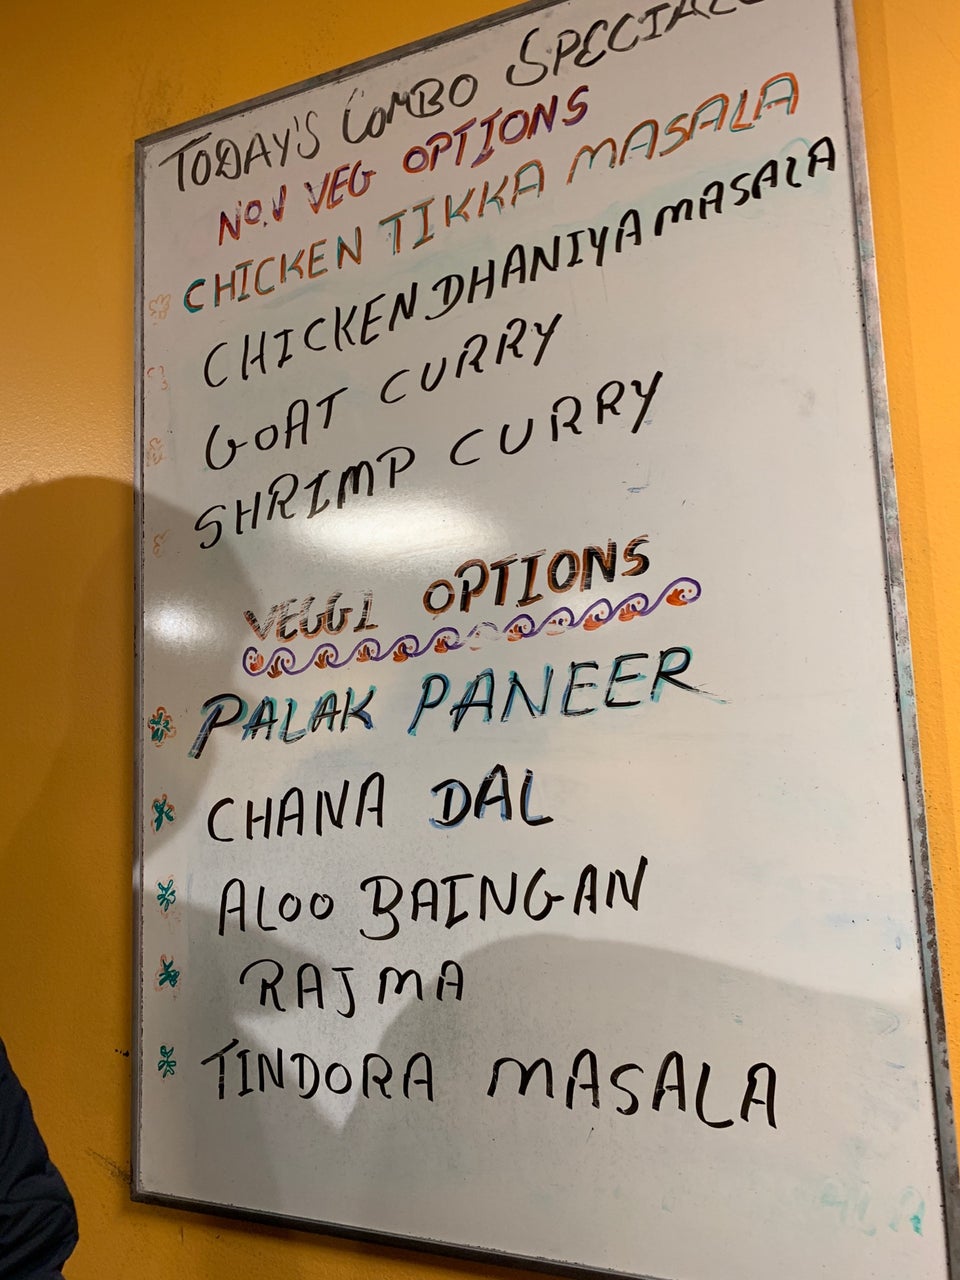 TODAY'S COMBO SPECIALS
NON VEG OPTIONS
CHICKEN TIKKA MASALA
CHICKEN DHANIYA MASALA
GOAT CURRY
SHRIMP CURRY
VEGGI OPTIONS
PALAK PANEER
CHANA DAL
ALOO BAINGAN
RAJMA
TINDORA MASALA